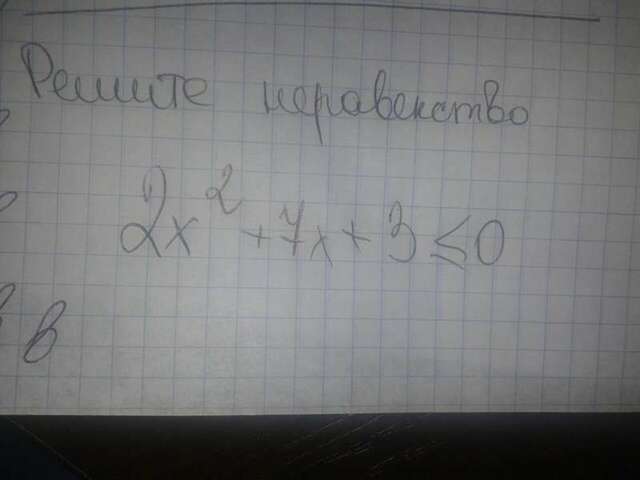 Решите неравенство
2x² + 7x + 3 ≤ 0
в